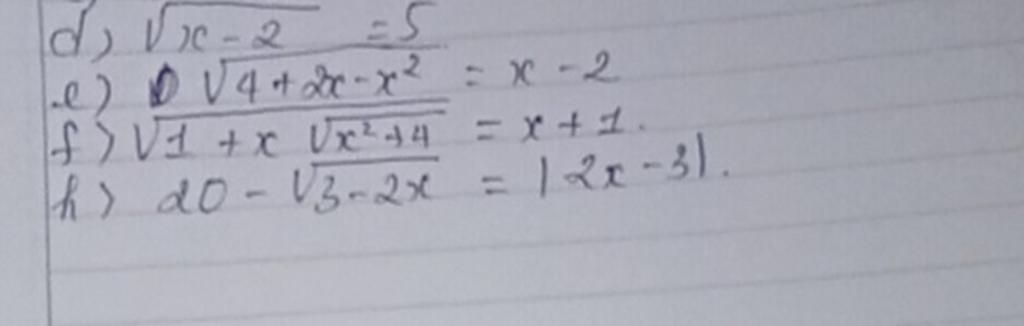 d) √x-2 = 5
e) √4+2x-x² = x-2
f) √1+x √x²+4 = x+1.
h) 20-√3-2x = |2x-3|.